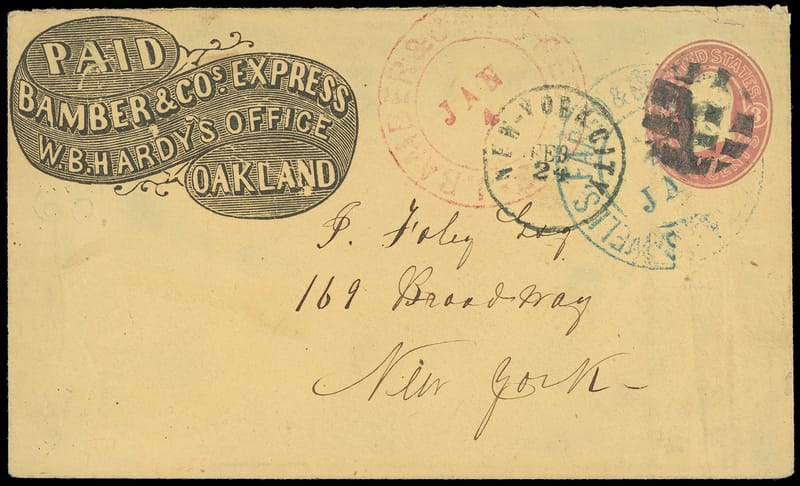 PAID
BAMBER & COS. EXPRESS
W.B. HARDY'S OFFICE
OAKLAND
BAMBER & CO
JAN
4
NEW-YORK-CITY
FEB
24
WELLS FA
&
JA
UNITED STATES
J. Foley Esq
169 Broadway
New York -